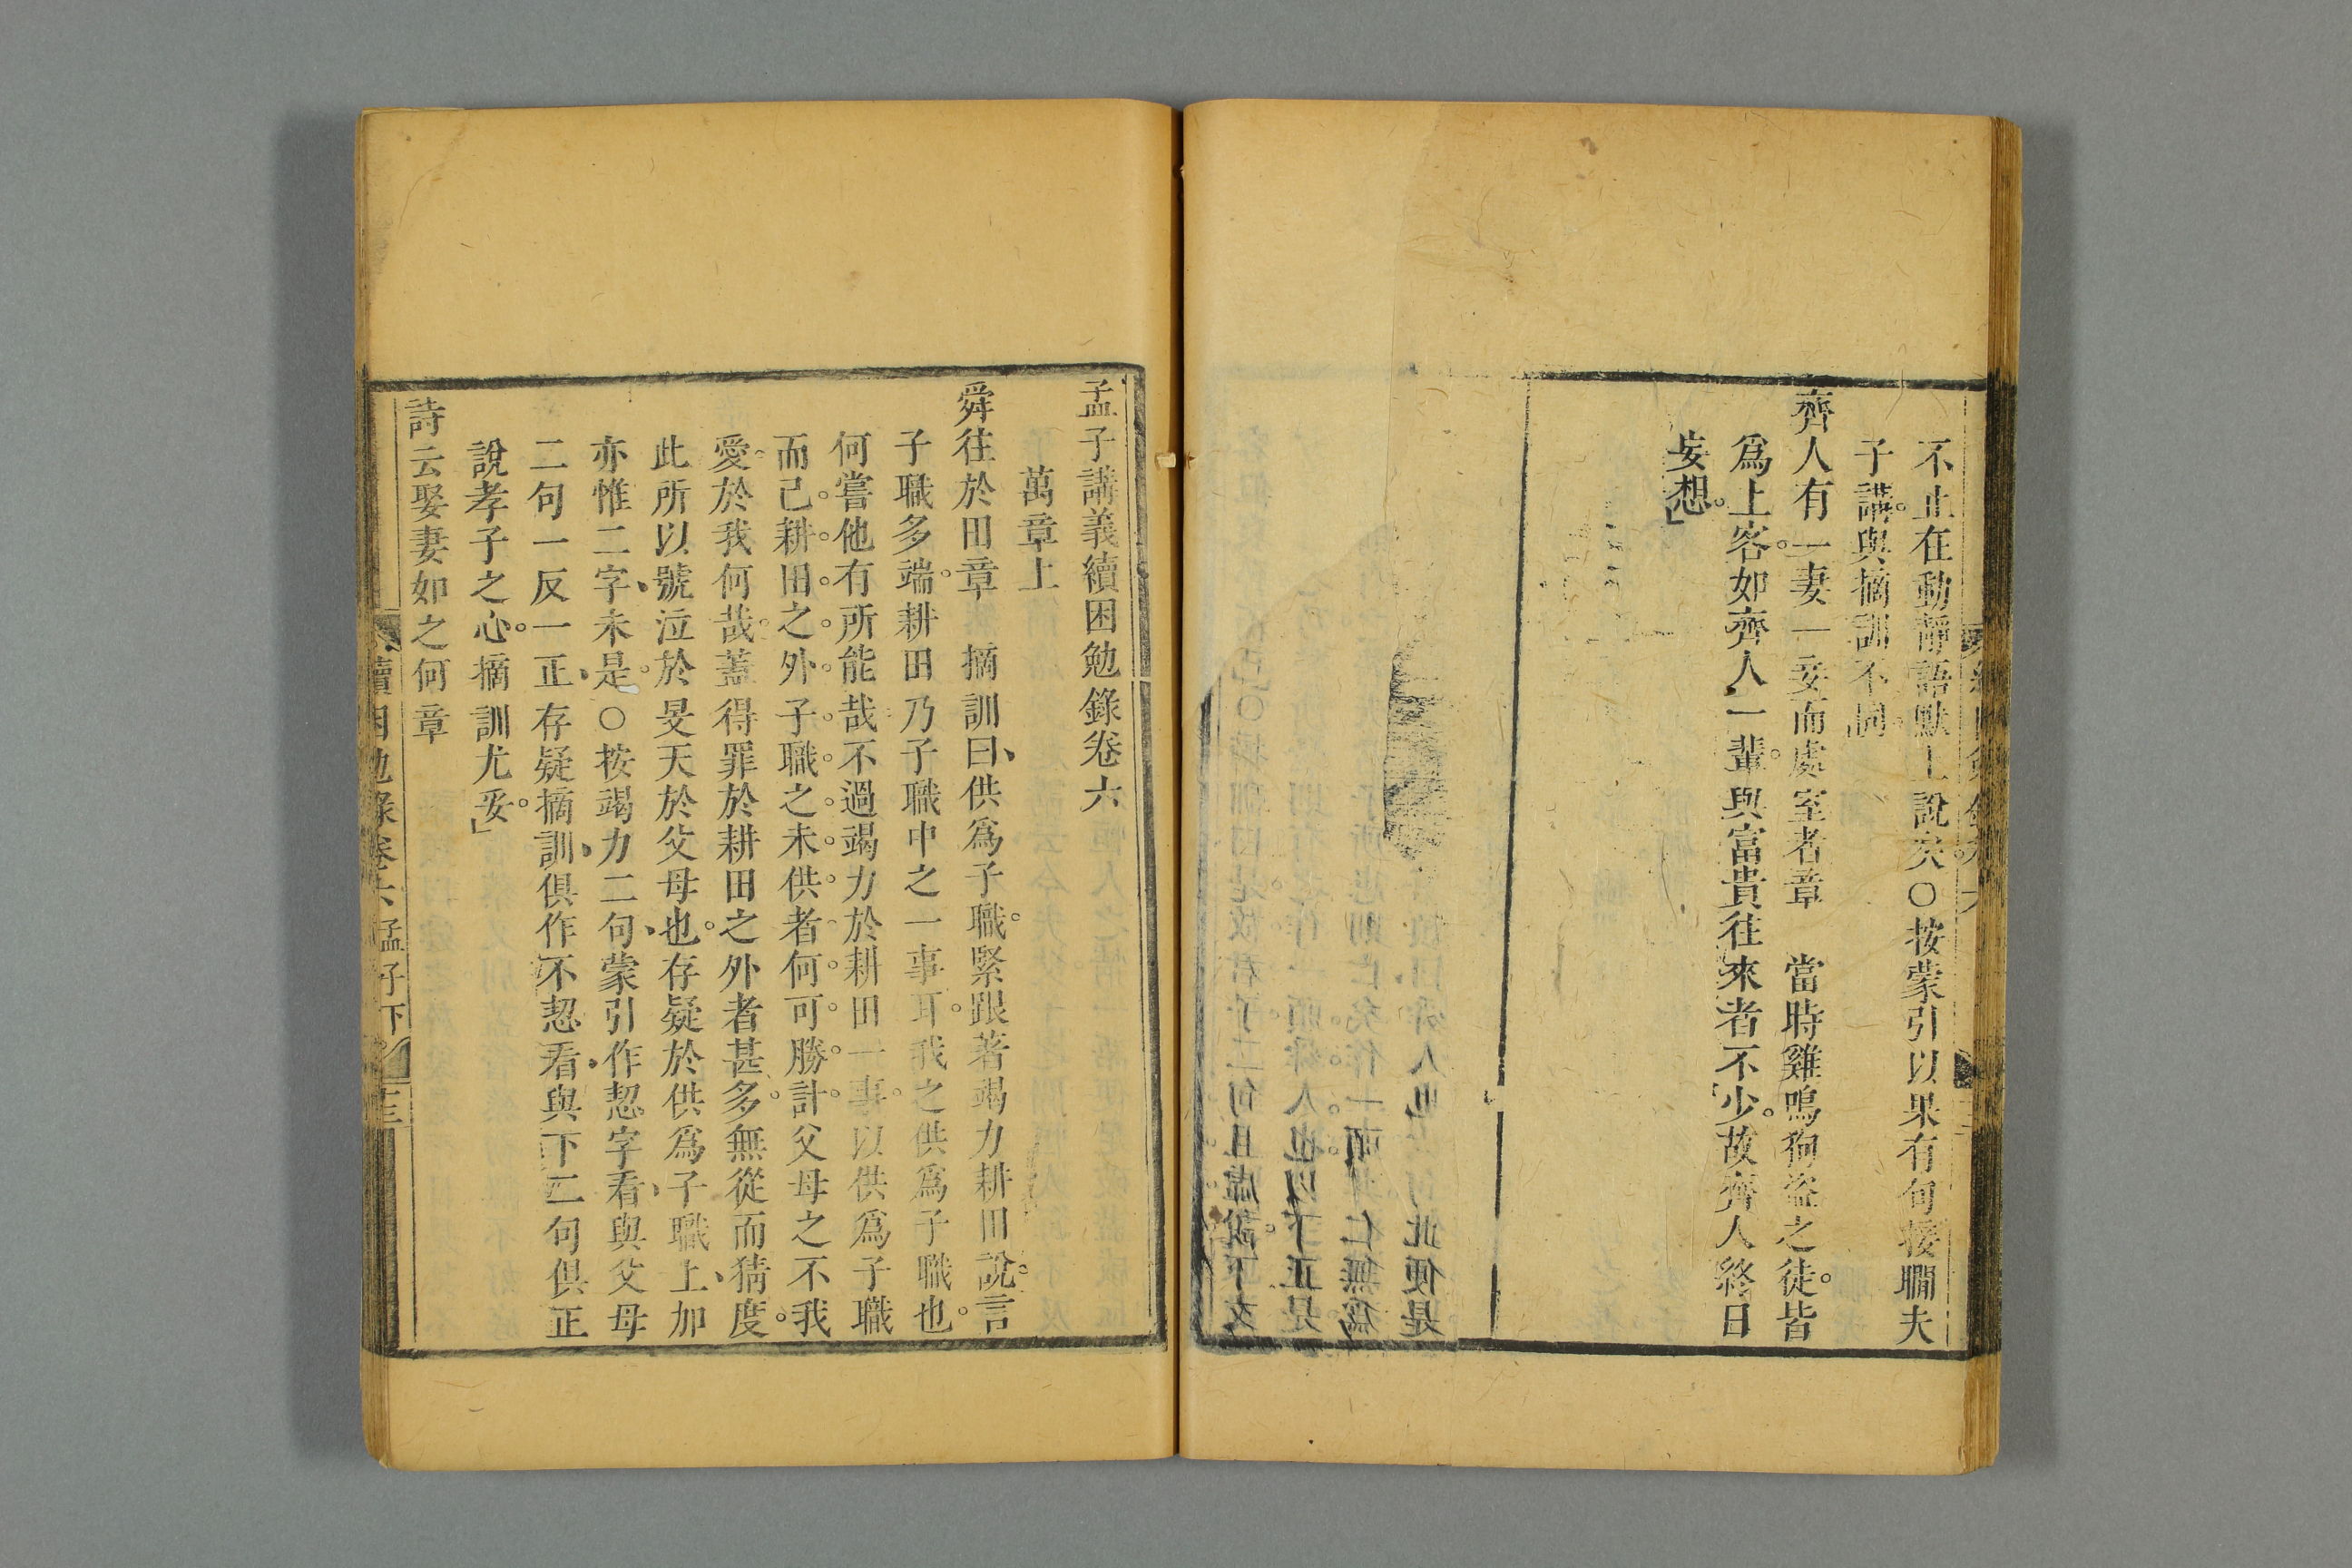 不止在動靜語默上說矣○按蒙引以果有句接瞷夫
子講與摘訓不同
齊人有一妻一妾而處室者章　當時雞鳴狗盜之徒皆
爲上客如齊人一輩與富貴往來者不少故齊人終日
妄想
孟子講義續困勉錄卷六
萬章上
舜往於田章　摘訓曰供爲子職緊跟著竭力耕田說言
子職多端耕田乃子職中之一事耳我之供爲子職也
何嘗他有所能哉不過竭力於耕田一事以供爲子職
而已耕田之外子職之未供者何可勝計父母之不我
愛於我何哉蓋得罪於耕田之外者甚多無從而猜度
此所以號泣於旻天於父母也存疑於供爲子職上加
亦惟二字未是○按竭力二句蒙引作恝字看與父母
二句一反一正存疑摘訓俱作不恝看與下二句俱正
說孝子之心摘訓尤妥
詩云娶妻如之何章
續困勉錄卷六 孟子下 十三